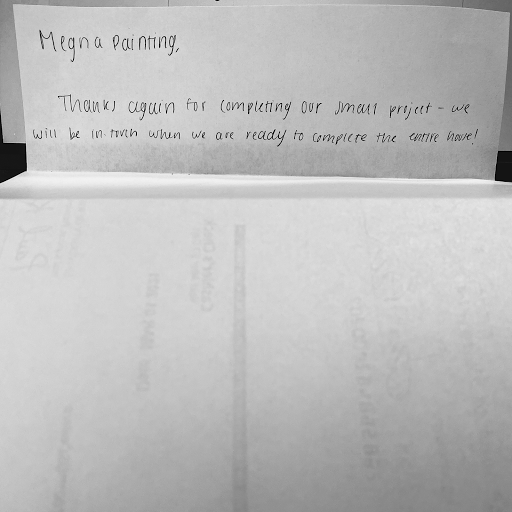 Megna Painting,
Thanks again for completing our small project - we
will be in-touch when we are ready to complete the entire house!